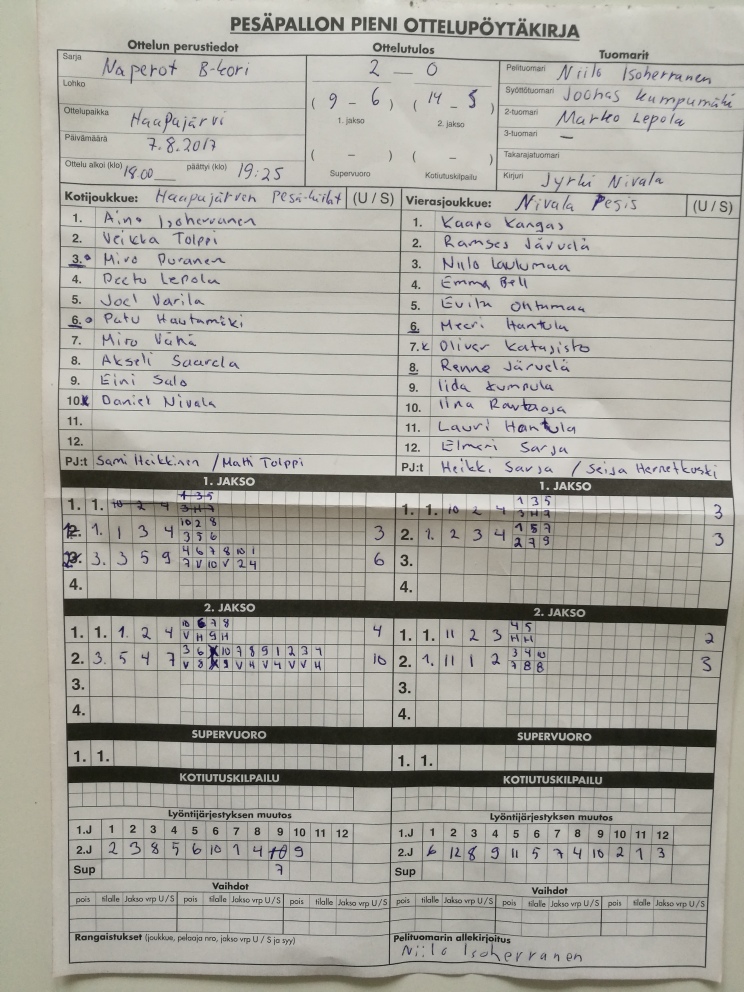 PESÄPALLON PIENI OTTELUPÖYTÄKIRJA
Ottelun perustiedot
Sarja Naperot B-kori
Lohko
Ottelupaikka Haapajärvi
Päivämäärä 7.8.2017
Ottelu alkoi (klo) 18.00 päättyi (klo) 19:25
Ottelutulos
2 – 0
( 9 – 6 ) ( 14 – 5 )
1. jakso 2. jakso
( – ) ( – )
Supervuoro Kotiutuskilpailu
Tuomarit
Pelituomari Niilo Isoherranen
Syöttötuomari Joonas Kumpumäki
2-tuomari Marko Lepola
3-tuomari –
Takarajatuomari
Kirjuri Jyrki Nivala
Kotijoukkue: Haapajärven Pesä-Kiilat (U / S)
1. Aino Isoherranen
2. Veikka Tolppi
3. Miro Puranen
4. Peetu Lepola
5. Joel Varila
6. Patu Hautamäki
7. Miro Vähä
8. Akseli Saarela
9. Eini Salo
10x Daniel Nivala
11.
12.
PJ:t Sami Heikkinen / Matti Tolppi
Vierasjoukkue: Nivala Pesis (U / S)
1. Kaapo Kangas
2. Ramses Järvelä
3. Niilo Laulumaa
4. Emma Bell
5. Evita Ohtamaa
6. Meeri Hantula
7.x Oliver Katajisto
8. Renne Järvelä
9. Iida Kumpula
10. Iina Rautaoja
11. Lauri Hantula
12. Elmeri Sarja
PJ:t Heikki Sarja / Seija Hernetkoski
1. JAKSO
1. 1. 10 2 4 1 3 5
3 H 7
1. 1 3 4 10 2 8 3
3 5 6
3. 3 5 9 4 6 7 8 10 1 6
7 V 10 V 2 4
4.
1. JAKSO
1. 1. 10 2 4 1 3 5 3
3 H 7
2. 1. 2 3 4 1 5 7 3
2 7 9
3.
4.
2. JAKSO
1. 1. 1. 2 4 10 6 7 8 4
V H 9 H
2. 3. 5 4 7 3 6 10 7 8 9 1 2 3 4 10
V 8 9 V H V 4 V V H
3.
4.
2. JAKSO
1. 1. 11 2 3 4 5 2
H H
2. 1. 11 1 2 3 4 10 3
7 8 8
3.
4.
SUPERVUORO
1. 1.
SUPERVUORO
1. 1.
KOTIUTUSKILPAILU
KOTIUTUSKILPAILU
Lyöntijärjestyksen muutos
1.J 1 2 3 4 5 6 7 8 9 10 11 12
2.J 2 3 8 5 6 10 1 4 10 9
Sup 7
Lyöntijärjestyksen muutos
1.J 1 2 3 4 5 6 7 8 9 10 11 12
2.J 6 12 8 9 11 5 7 4 10 2 1 3
Sup
Vaihdot
pois tilalle Jakso vrp U / S pois tilalle Jakso vrp U / S pois tilalle Jakso vrp U / S
Vaihdot
pois tilalle Jakso vrp U / S pois tilalle Jakso vrp U / S pois tilalle Jakso vrp U / S
Rangaistukset (joukkue, pelaaja nro, jakso vrp U / S ja syy)
Pelituomarin allekirjoitus
Niilo Isoherranen